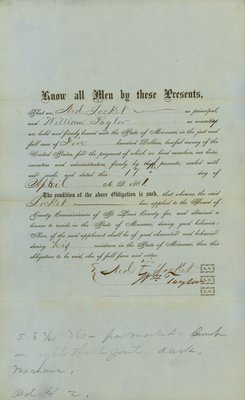 Know all Men by these Presents,
That we Ned Locket as principal
and William Taylor as security
are held and firmly bound unto the State of Missouri, in the just and
full sum of Five hundred Dollars, lawful money of the
United States, for the payment of which we bind ourselves, our heirs,
executors and administrators, firmly by these presents, sealed with
our seals and dated this 17th day of
April A. D. 1861
The condition of the above Obligation is such, that whereas the said
Locket has applied to the Board of
County Commissioners of St. Louis County for and obtained a
license to reside in the State of Missouri, during good behavior:
Now, if the said applicant shall be of good character and behavior
during his residence in the State of Missouri, then this
obligation to be void, else of full force and virtue.
Ned Locket
Wm Taylor
5 8 ½ 36 - pox marked -
on right thumb joint dark,
Mechanic,
Vol. A 2.